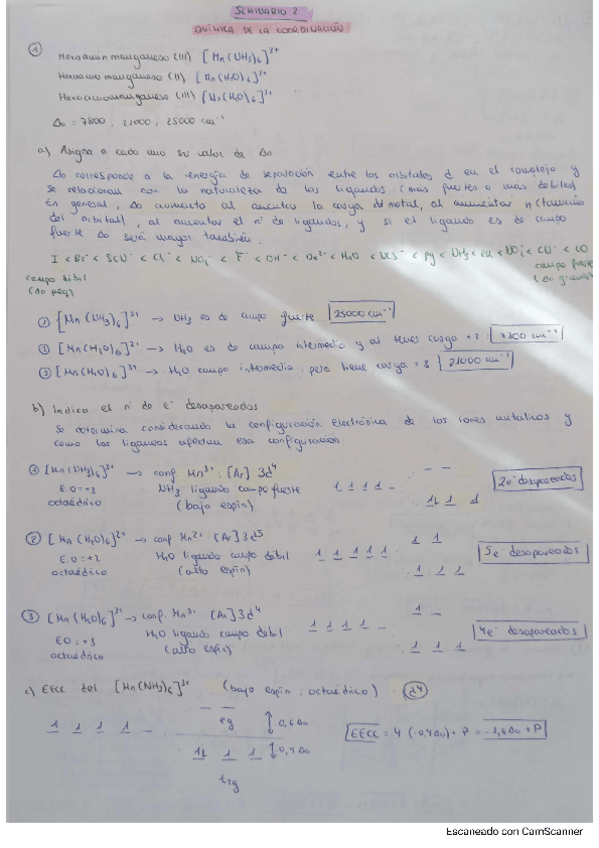 SEMINARIO 2
QUÍMICA DE LA COORDINACIÓN
①
Hexaamin manganeso (III) [Mn(NH₃)₆]³⁺
Hexacuo manganeso (II) [Mn(H₂O)₆]²⁺
Hexacuo manganeso (III) [Mn(H₂O)₆]³⁺
Δo = 7800 ; 21000 ; 25000 cm⁻¹
a) Asigna a cada uno su valor de Δo
Δo corresponde a la energía de separación entre los orbitales d en el complejo y
se relacionan con la naturaleza de los ligandos (más fuertes o más débiles)
En general, Δo aumenta al aumentar la carga del metal, al aumentar n (tamaño
del orbital), al aumentar el nº de ligandos, y si el ligando es de campo
fuerte Δo será mayor también.
I⁻ < Br⁻ < SCN⁻ < Cl⁻ < NO₃⁻ < F⁻ < OH⁻ < Ox²⁻ < H₂O < NCS⁻ < py < NH₃ < en < NO₂⁻ < CN⁻ < CO
campo débil campo fuerte
(Δo peq) (Δo grande)
① [Mn(NH₃)₆]³⁺ → NH₃ es de campo fuerte 25000 cm⁻¹
② [Mn(H₂O)₆]²⁺ → H₂O es de campo intermedio y al tener carga +2 : 7800 cm⁻¹
③ [Mn(H₂O)₆]³⁺ → H₂O campo intermedio, pero tiene carga +3 21000 cm⁻¹
b) Indica el nº de e⁻ desapareados
Se determina considerando la configuración electrónica de los iones metálicos y
como los ligandos afectan esa configuración.
① [Mn(NH₃)₆]³⁺ → conf. Mn³⁺ : [Ar] 3d⁴
E.O = +3 NH₃ ligando campo fuerte 2e⁻ desapareados
octaédrico (bajo espín)
② [Mn(H₂O)₆]²⁺ → conf. Mn²⁺ : [Ar] 3d⁵
E.O = +2 H₂O ligando campo débil 5e⁻ desapareados
octaédrico (alto espín)
③ [Mn(H₂O)₆]³⁺ → conf. Mn³⁺ [Ar] 3d⁴
E.O = +3 H₂O ligando campo débil 4e⁻ desapareados
octaédrico (alto espín)
c) EECC del [Mn(NH₃)₆]³⁺ (bajo espín : octaédrico) d⁴
eg 0,6Δo
EECC = 4 (-0,4Δo) + P = -1,6Δo + P
0,4Δo
t₂g
Escaneado con CamScanner